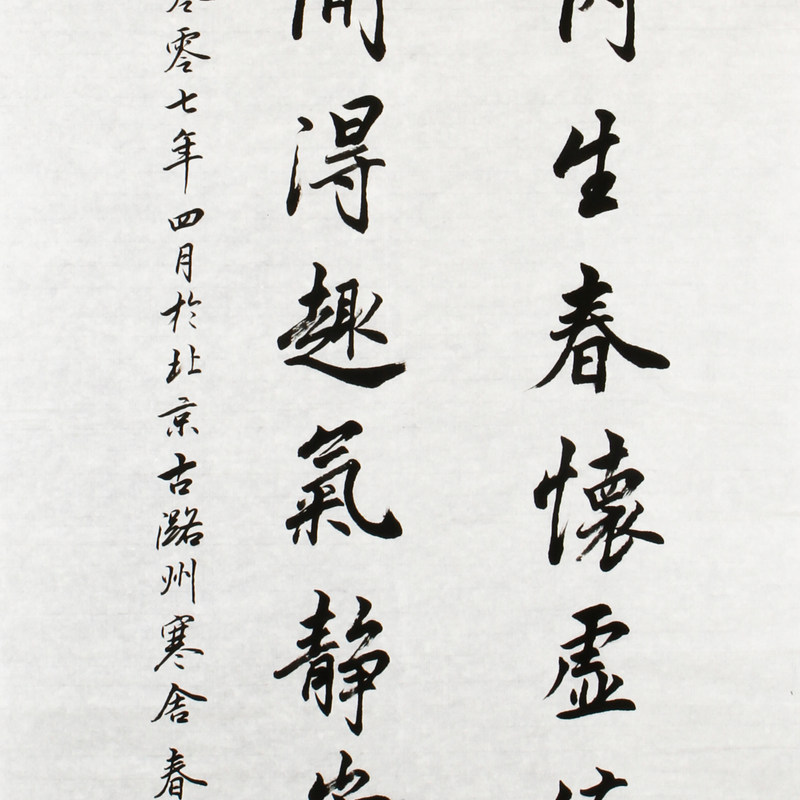 生春懷虚
得趣氣静
零七年四月於北京古潞州寒舍春